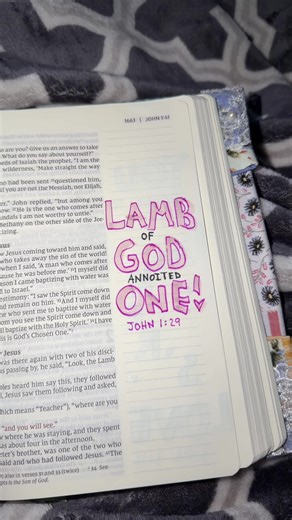 1663 | JOHN 1:41
o are you? Give us an answer to take
What do you say about yourself?"
ords of Isaiah the prophet, "I am the
wilderness, 'Make straight the way
ho had been sent ²⁵questioned him,
if you are not the Messiah, nor Elijah,
er," John replied, "but among you
now. ²⁷He is the one who comes after
andals I am not worthy to untie."
Bethany on the other side of the Jor-
izing.
sus
w Jesus coming toward him and said,
who takes away the sin of the world!
when I said, 'A man who comes after
cause he was before me.' ³¹I myself did
eason I came baptizing with water was
d to Israel."
estimony: "I saw the Spirit come down
nd remain on him. ³³And I myself did
ne who sent me to baptize with water
om you see the Spirit come down and
ill baptize with the Holy Spirit.' ³⁴I have
is is God's Chosen One."
w Jesus
was there again with two of his disci-
us passing by, he said, "Look, the Lamb
ples heard him say this, they followed
d, Jesus saw them following and asked,
hich means "Teacher"), "where are you
"and you will see."
w where he was staying, and they spent
as about four in the afternoon.
eter's brother, was one of the two who
said and who had followed Jesus. ⁴¹The
also in verses 31 and 33 (twice) ᶠ 34 See
is the Son of God.
LAMB
OF
GOD
ANNOITED
ONE!
JOHN 1:29